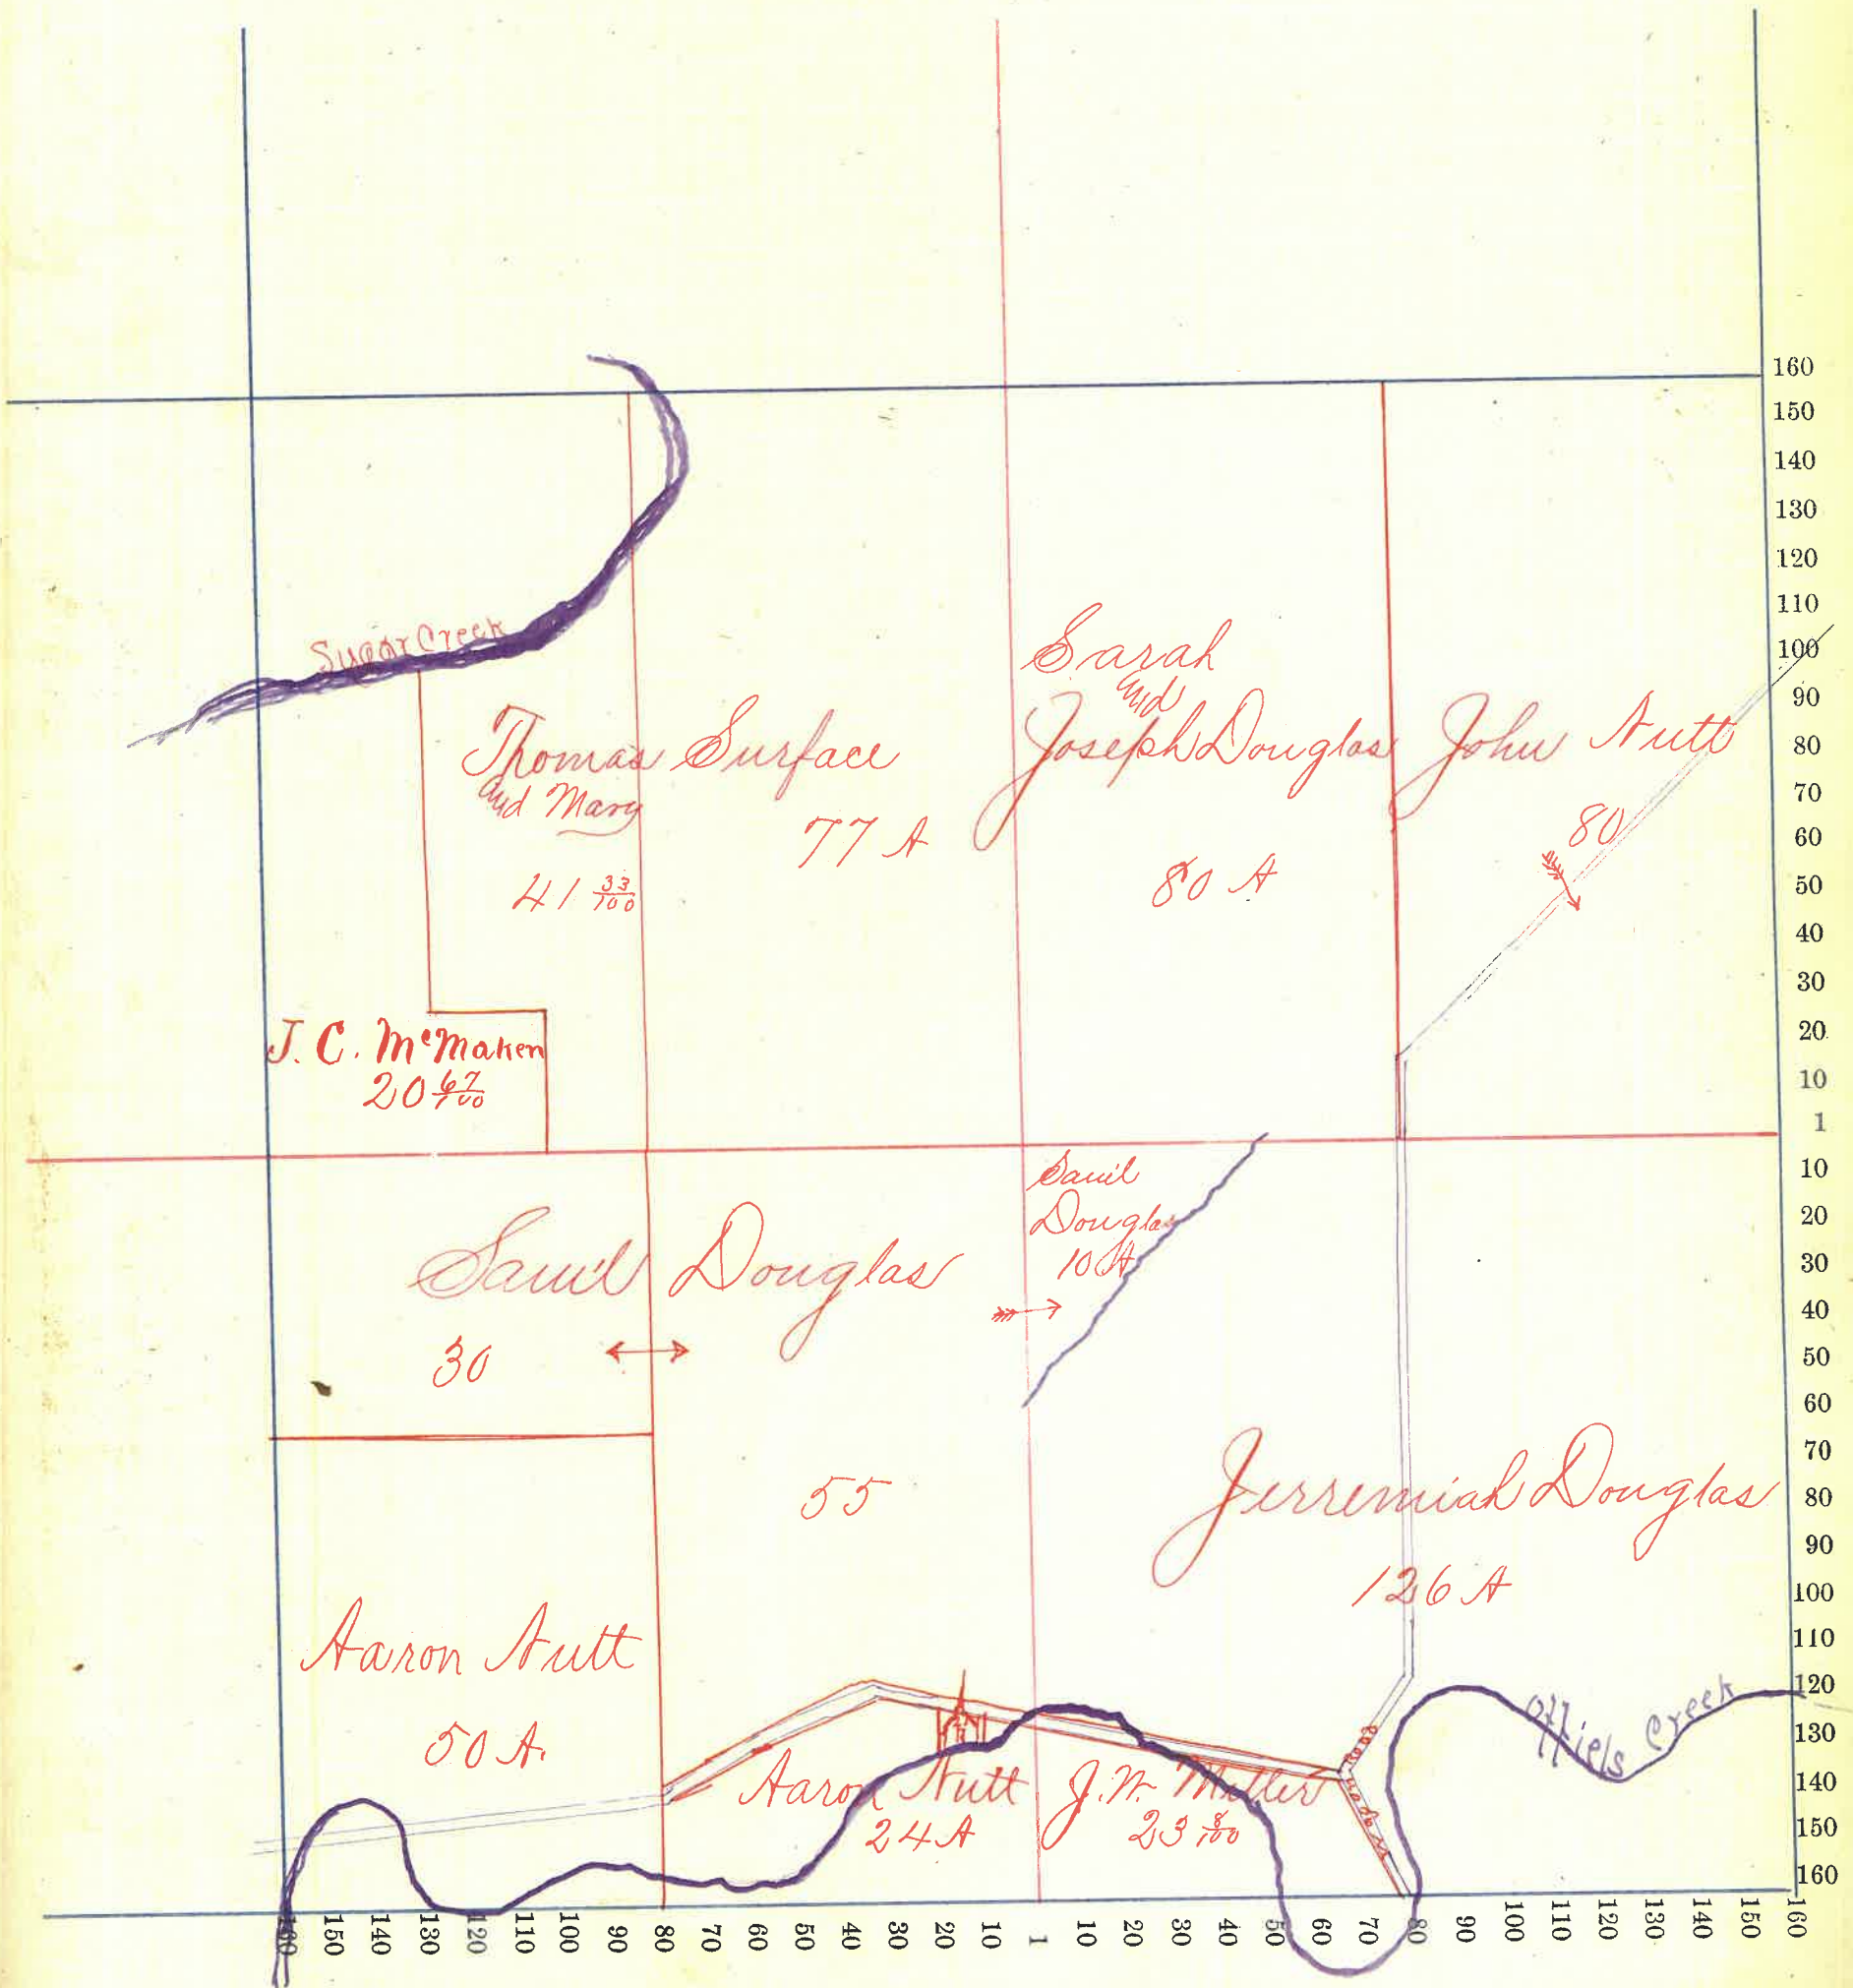 160
150
140
130
120
110
100
90
80
70
60
50
40
30
20
10
1
10
20
30
40
50
60
70
80
90
100
110
120
130
140
150
160
Sugar Creek
Thomas Surface
and Mary
77 A
41 33/100
Sarah
and
Joseph Douglas
80 A
John Nutt
80
J. C. McMaken
20 67/100
Saml Douglas
30
55
Saml
Douglas
10 A
Jerremiah Douglas
126 A
Aaron Nutt
50 A.
Aaron Nutt
24 A
J. W. Miller
23 8/100
Road
Offiels Creek
160 150 140 130 120 110 100 90 80 70 60 50 40 30 20 10 1 10 20 30 40 50 60 70 80 90 100 110 120 130 140 150 160